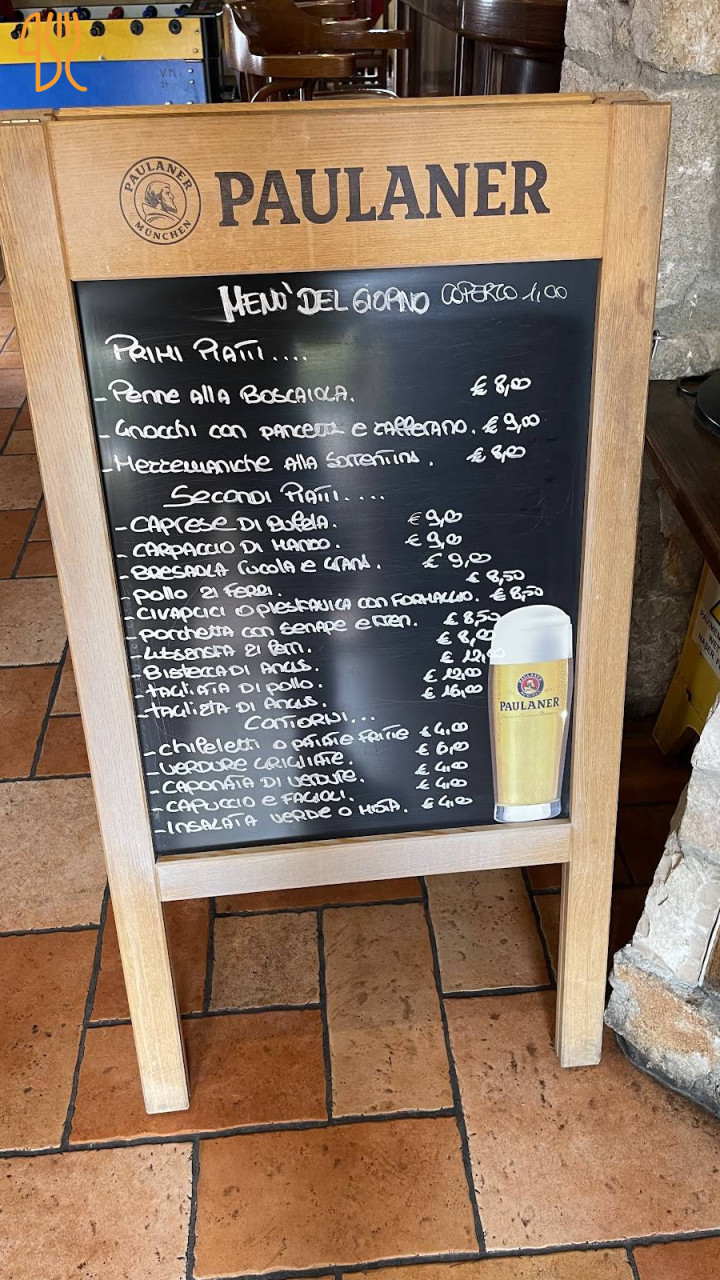 PAULANER MÜNCHEN
PAULANER
MENÙ DEL GIORNO COPERTO 1,00
PRIMI PIATTI....
- PENNE ALLA BOSCAIOLA. € 8,00
- GNOCCHI CON PANCETTA E ZAFFERANO. € 9,00
- MEZZEMANICHE ALLA SORRENTINA. € 8,00
SECONDI PIATTI....
- CAPRESE DI BUFALA. € 9,00
- CARPACCIO DI MANZO. € 9,00
- BRESAOLA RUCOLA E GRANA. € 9,00
- POLLO AI FERRI. € 8,50
- CIVAPCICI O PLESKAVICA CON FORMAGGIO. € 8,50
- PORCHETTA CON SENAPE E KREN. € 8,50
- AI FERRI. € 8,00
- BISTECCA DI ANGUS. € 12,00
- TAGLIATA DI POLLO. € 12,00
- TAGLIATA DI ANGUS. € 16,00
CONTORNI...
- CHIFELETTI O PATATE FRITTE € 4,00
- VERDURE GRIGLIATE. € 6,00
- CAPONATA DI VERDURE. € 4,00
- CAPUCCIO E FAGIOLI. € 4,00
- INSALATA VERDE O MISTA. € 4,00
PAULANER